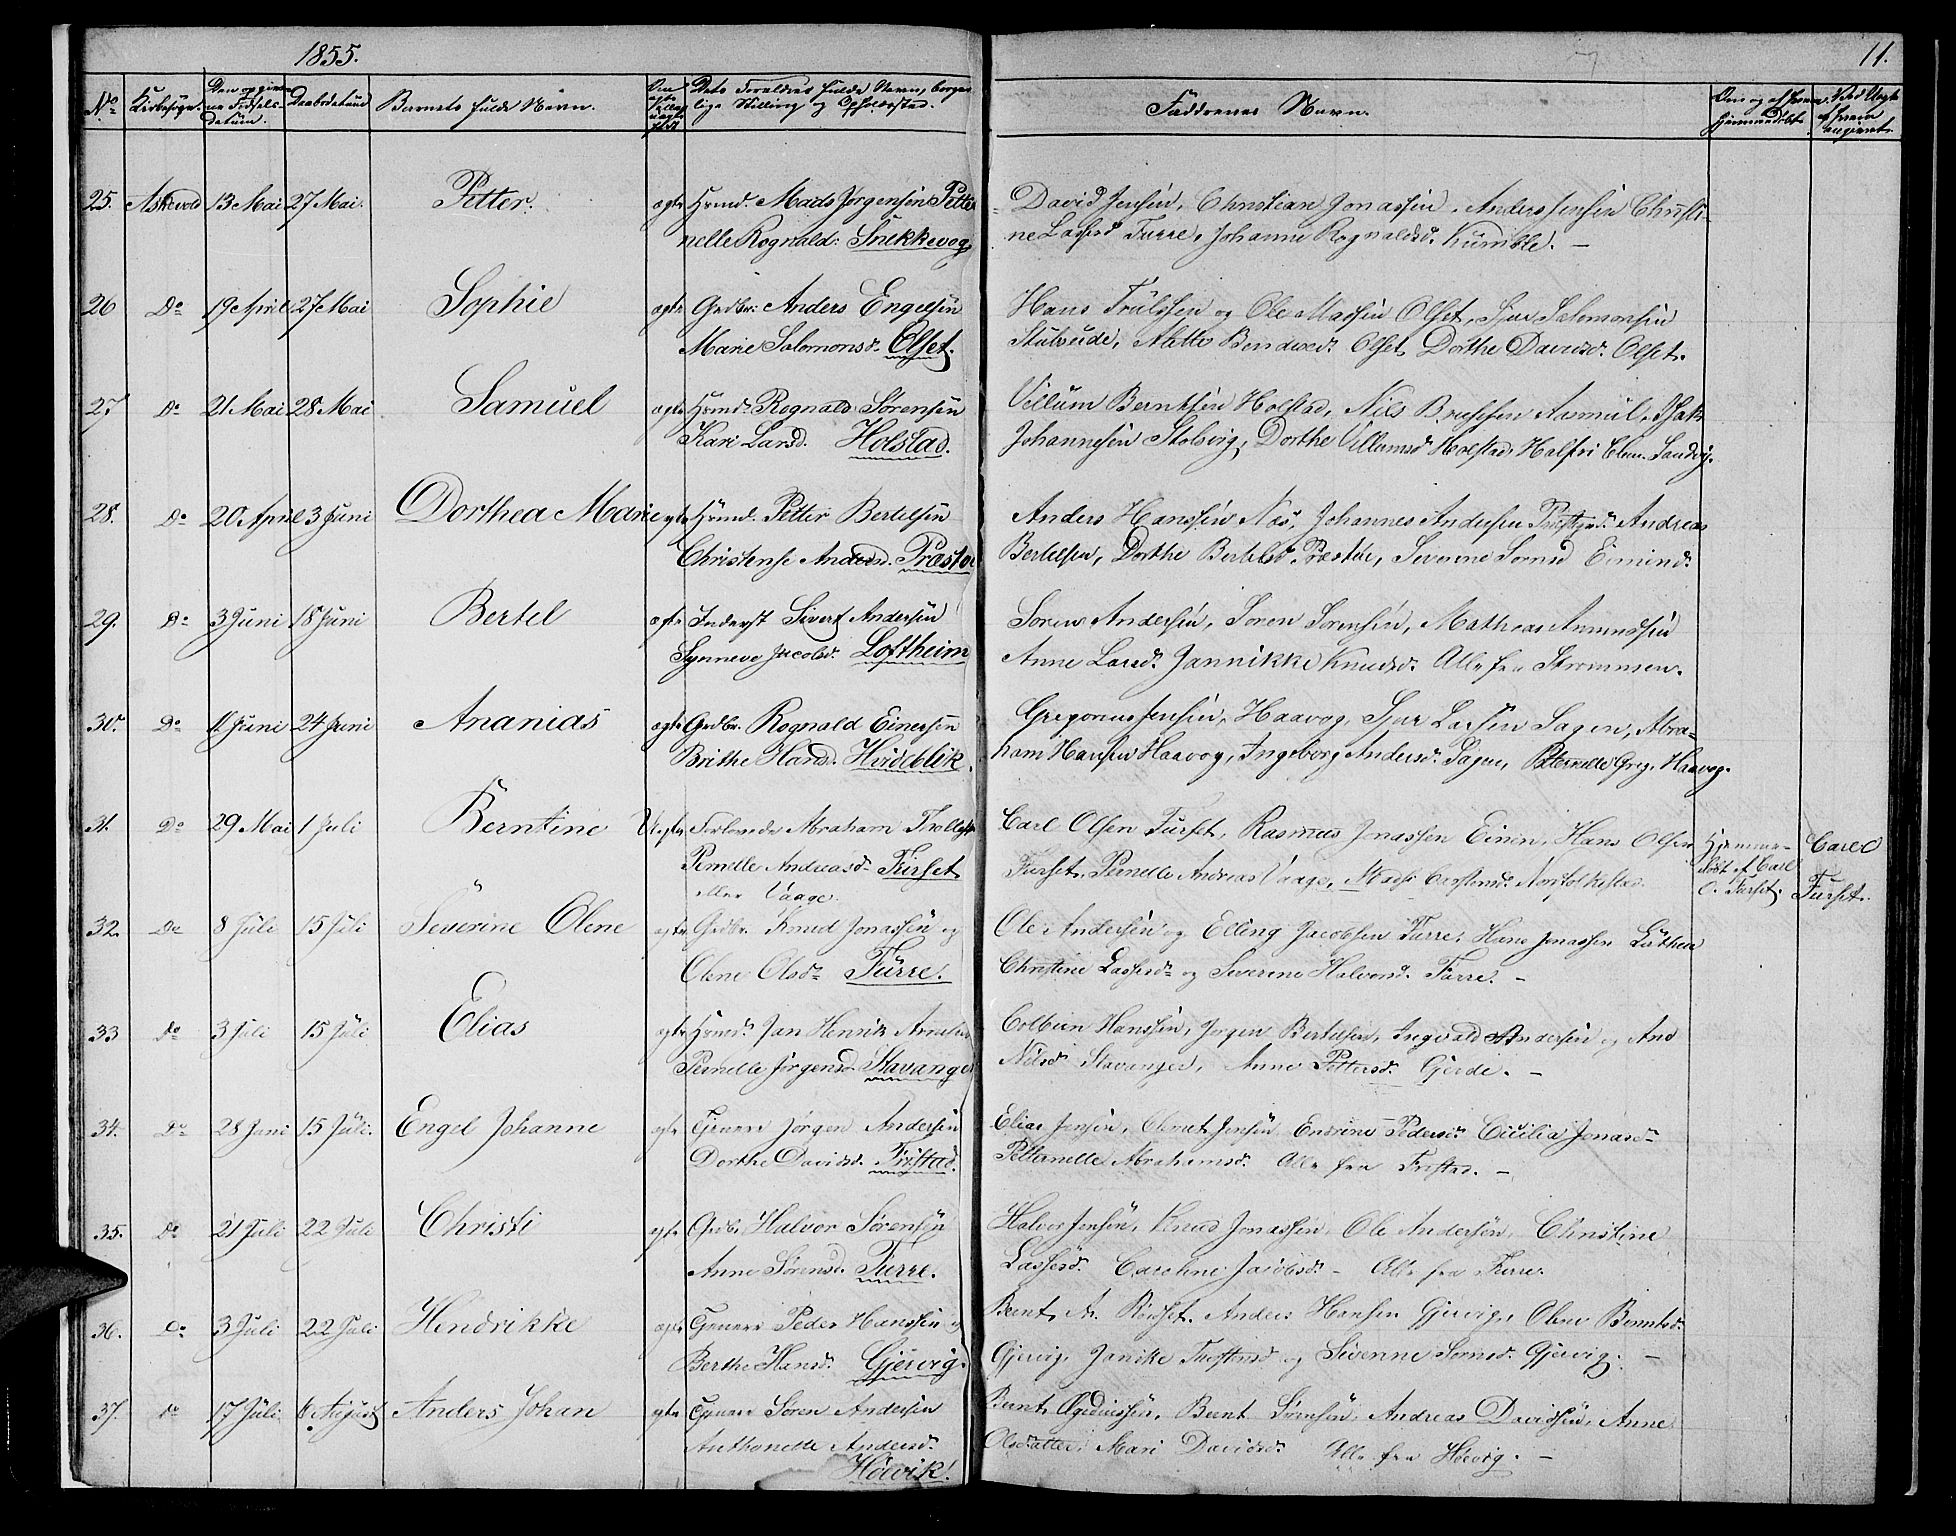 1855.
11.
No Kirkesogn. Den opgivne Fødselsdatum. Daabsdatum Barnets fulde Navn. Dets Forældres fulde Navn, borgerlige Stilling og Opholdssted.
Faddernes Navn.
25. Askevold 13 Mai 27 Mai. Petter. ægte Hrmd. Mads Jørgensen Petter
nelle Rognald: Snekkevog
David Jensen, Christian Jonassen, Anders Jensen Christi-
ne Lassesd Furre, Johanne Rognaldsd. Kumble. -
26 Do 19 April 27 Mai Sophie ægte Grdbr. Anders Engelsen
Marie Salomonsd. Olset.
Hans Trulssen og Ole Madsen Olset, Sjur Salomonsen
Mette Olset, Dorthe Davidsd. Olset.
27 Do 21 Mai 28 Mai Samuel ægte Hrmd. Rognald Sørensen
Kari Larsd. Holstad.
Villum Berntsen Holstad, Nils Aamul, Isak
Johannesen Dorthe Villumsd Holstad,
28. Do 20 April 3 Juni Dorthea Marie ægte Hrmd. Petter Bertelsen
Christense Andersd. Præstø
Anders Hanssen Næs, Johannes Andersen Andreas
Bertelsen, Dorthe Bertelsd. Severine
29. Do 3 Juni 18 Juni Bertel ægte Inderst Sivert Andersen
Synneve Jacobsd. Loftheim
Søren Andersen, Søren Sørensen, Mathias
Anne Larsd. Jannikke Knudsd. Alle fra Strømmen.
30. Do 11 Juni 24 Juni Ananias ægte Grdbr. Rognald Einersen
Brithe Hansd. Hirdeblik.
Gregorius Jensen, Haavog, Sjur Lassen Sagen, Abra-
ham Hansen Haavog, Ingeborg Andersd. Sagen, Petternelle Greg. Haavog.
31. Do 29 Mai 1 Juli Berntine Uægte Forlovede Abraham
Pernelle Andreasd. Furset
eller Vaage.
Carl Olsen Furset, Rasmus Jonassen Hans Olsen
Furset, Pernelle Andreas Vaage,
Hjemme-
døbt af Carl
O. Furset.
Carl
Furset.
32. Do 8 Juli 15 Juli Severine Olene ægte Grdbr. Knud Jonassen og
Olene Olsd. Furre.
Ole Andersen og Elling Jacobsen Furre, Hans Jonassen
Christine Lassesd. og Severine Halvorsd. Furre. -
33 Do 3 Juli 15 Juli Elias ægte Hrmd. Jan Henrik
Pernelle Jørgensd. Stavanger
Colbein Hanssen, Jørgen Bertelsen, Ingvald Andersen og
Nilsd Stavanger, Anne Pettersd. Gjerde. -
34. Do 28 Juni 15 Juli. Engel Johanne ægte Jørgen Andersen
Dorthe Davidsd. Frøstad.
Elias Jensen, Jensen Endrine Pedersd. Cicilia Jonasd.
Petternelle Abrahamsd. Alle fra Frøstad. -
35. Do 21 Juli 22 Juli Christi ægte Grdbr. Halvor Sørensen
Anne Sørensd. Furre.
Halvor Jensen, Knud Jonassen, Ole Andersen, Christine
Lassesd. Caroline Jacobsd. - Alle fra Furre.
36. Do 3 Juli 22 Juli Hendrikke ægte Peder Hanssen og
Berthe Hansd. Gjervig.
Bernt A. Anders Hansen Gjervig, Olene Berntsd.
Gjervig, Janike og Severine Gjervig. -
37. Do 17 Juli 6 August Anders Johan ægte Søren Andersen
Anthonette Andersd.
Høevik!
Bernt Bernt Sørensen, Andreas Davidsen, Anne
Olsdatter, Mari Davidsd. Alle fra Høevig. -